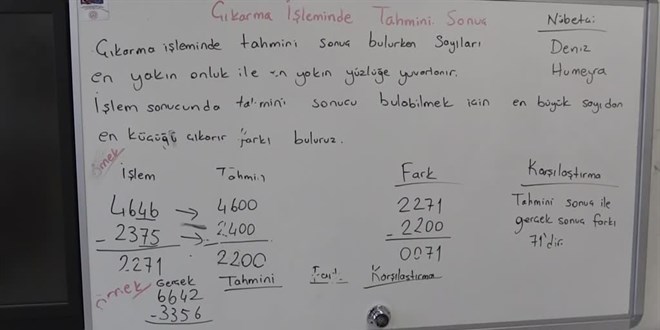 Çıkarma İşleminde Tahmini Sonuç
Nöbetçi:
Deniz
Humeyra
Çıkarma işleminde tahmini sonuç bulurken sayıları
en yakın onluk ile en yakın yüzlüğe yuvarlanır.
İşlem sonucunda tahmini sonucu bulabilmek için en büyük sayıdan
en küçüğü çıkarır farkı buluruz.
örnek
İşlem Tahmin Fark Karşılaştırma
4646 → 4600 2271 Tahmini sonuç ile
- 2375 → - 2400 - 2200 gerçek sonuç farkı
2271 2200 0071 71'dir.
örnek Gerçek Tahmini Fark Karşılaştırma
6642
- 3356